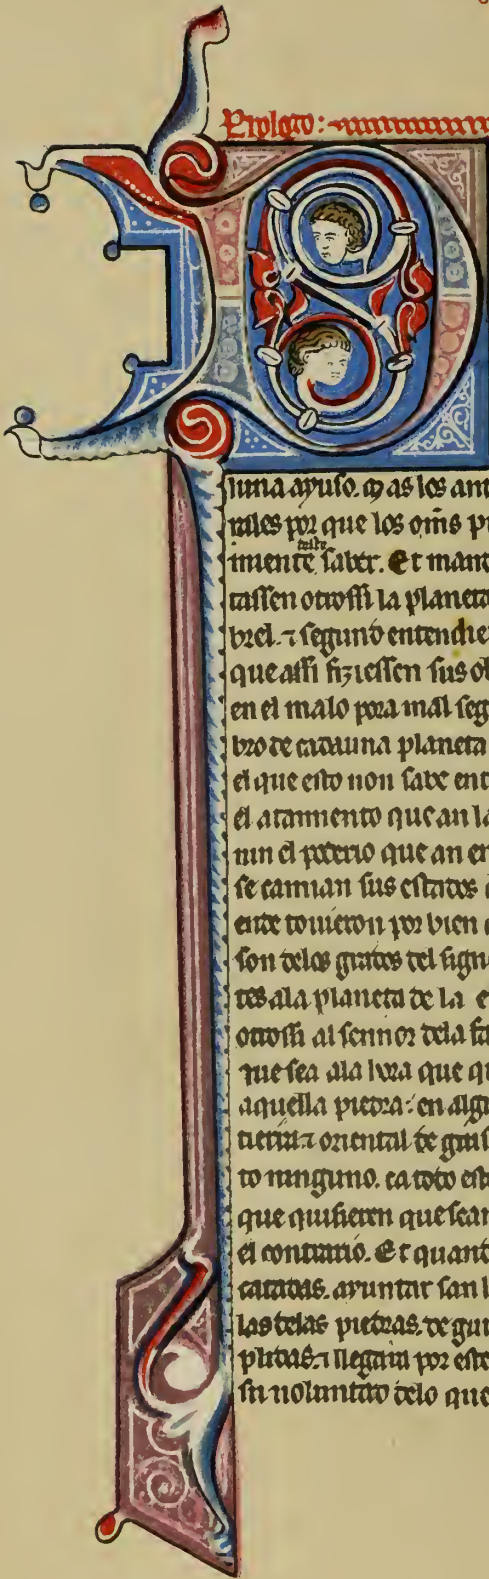 Prologo:
luna ayuso. Mas los ant
tales por que los om̃s p
miente saber. Et mand
tassen otrossi la planeta
brel. ⁊ segund entendie
que assi fiziessen sus ob
en el malo pora mal seg
bro de cadauna planeta
el que esto non sabe ent
el atannento que an la
nin el poderio que an en
se camian sus estados
ende touieron por bien
son delos grados del sign
tes ala planeta de la e
otrossi al sennor dela fa
que sea ala hora que qu
aquella piedra: en alg
tierra ⁊ oriental de guis
to ninguno. ca todo est
que quisieren que sean
el contrario. Et quand
catadas. ayuntar san l
las delas piedras. de gui
plidas. ⁊ llegara por este
su uoluntad delo que